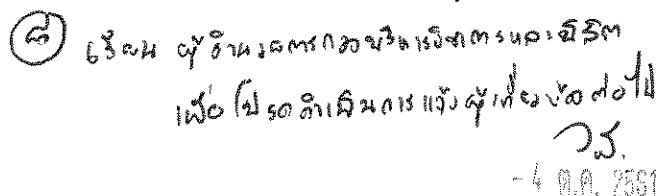 ๕ เรียน ผู้อำนวยการกองบริการวิชาการและวิจัย
เพื่อโปรดดำเนินการแจ้งผู้เกี่ยวข้องต่อไป
วส.
-4 ต.ค. 2561